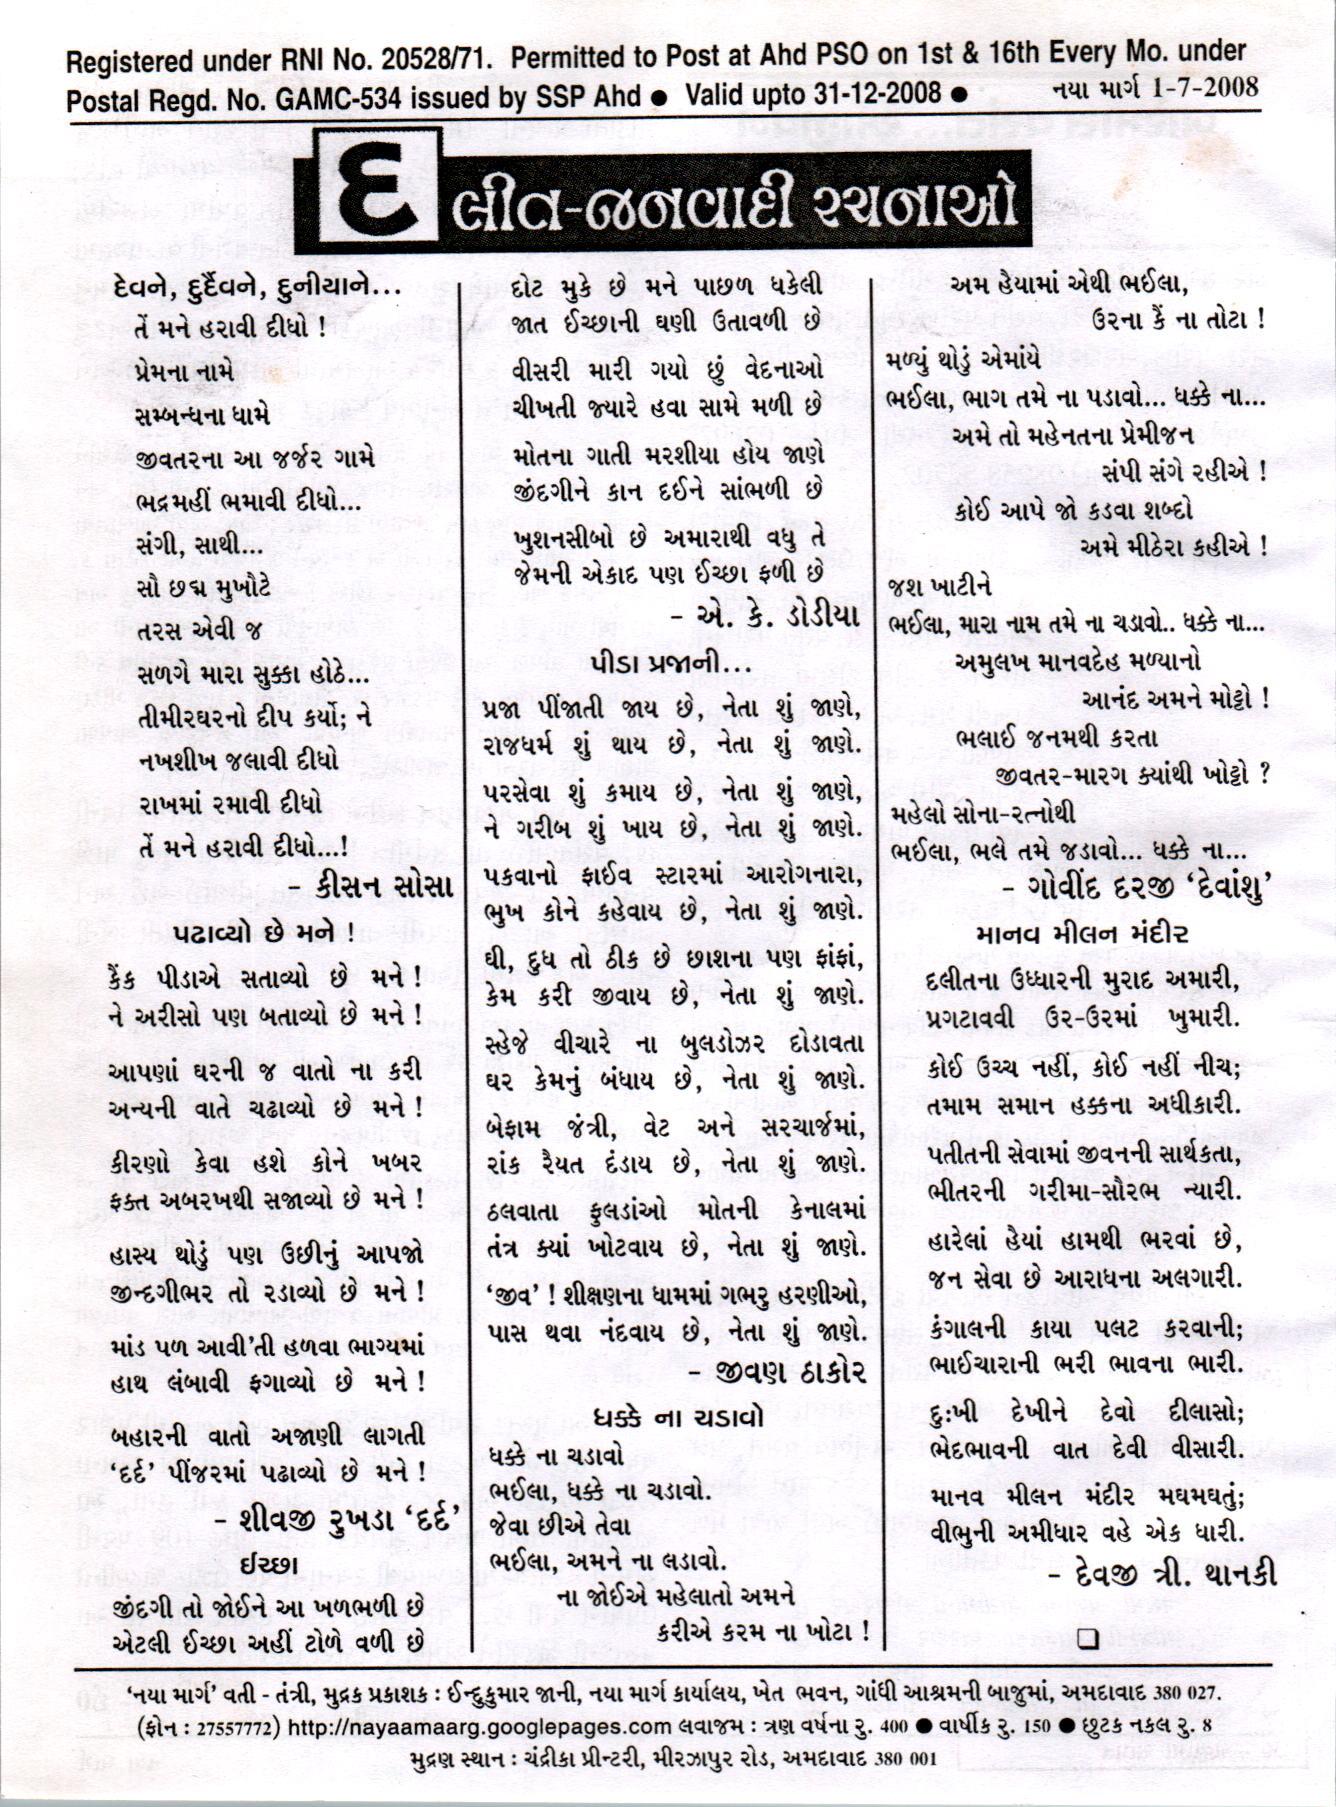 Registered under RNI No. 20528/71. Permitted to Post at Ahd PSO on 1st & 16th Every Mo. under
Postal Regd. No. GAMC-534 issued by SSP Ahd ● Valid upto 31-12-2008 ● નયા માર્ગ 1-7-2008
દલીત-જનવાદી રચનાઓ
દેવને, દુર્દૈવને, દુનીયાને...
તેં મને હરાવી દીધો !
પ્રેમના નામે
સમ્બન્ધના ધામે
જીવતરના આ જર્જર ગામે
ભદ્રમહીં ભમાવી દીધો...
સંગી, સાથી...
સૌ છદ્મ મુખૌટે
તરસ એવી જ
સળગે મારા સુક્કા હોઠે...
તીમીરઘરનો દીપ કર્યો; ને
નખશીખ જલાવી દીધો
રાખમાં રમાવી દીધો
તેં મને હરાવી દીધો...!
- કીસન સોસા
પઢાવ્યો છે મને !
કૈંક પીડાએ સતાવ્યો છે મને !
ને અરીસો પણ બતાવ્યો છે મને !
આપણાં ઘરની જ વાતો ના કરી
અન્યની વાતે ચઢાવ્યો છે મને !
કીરણો કેવા હશે કોને ખબર
ફક્ત અબરખથી સજાવ્યો છે મને !
હાસ્ય થોડું પણ ઉછીનું આપજો
જીન્દગીભર તો રડાવ્યો છે મને !
માંડ પળ આવી'તી હળવા ભાગ્યમાં
હાથ લંબાવી ફગાવ્યો છે મને !
બહારની વાતો અજાણી લાગતી
‘દર્દ’ પીંજરમાં પઢાવ્યો છે મને !
- શીવજી રુખડા ‘દર્દ’
ઈચ્છા
જીંદગી તો જોઈને આ ખળભળી છે
એટલી ઈચ્છા અહીં ટોળે વળી છે
દોટ મુકે છે મને પાછળ ધકેલી
જાત ઈચ્છાની ઘણી ઉતાવળી છે
વીસરી મારી ગયો છું વેદનાઓ
ચીખતી જ્યારે હવા સામે મળી છે
મોતના ગાતી મરશીયા હોય જાણે
જીંદગીને કાન દઈને સાંભળી છે
ખુશનસીબો છે અમારાથી વધુ તે
જેમની એકાદ પણ ઈચ્છા ફળી છે
- એ. કે. ડોડીયા
પીડા પ્રજાની...
પ્રજા પીંજાતી જાય છે, નેતા શું જાણે,
રાજધર્મ શું થાય છે, નેતા શું જાણે.
પરસેવા શું કમાય છે, નેતા શું જાણે,
ને ગરીબ શું ખાય છે, નેતા શું જાણે.
પકવાનો ફાઈવ સ્ટારમાં આરોગનારા,
ભુખ કોને કહેવાય છે, નેતા શું જાણે.
ઘી, દુધ તો ઠીક છે છાશના પણ ફાંફાં,
કેમ કરી જીવાય છે, નેતા શું જાણે.
સ્હેજે વીચારે ના બુલડોઝર દોડાવતા
ઘર કેમનું બંધાય છે, નેતા શું જાણે.
બેફામ જંત્રી, વેટ અને સરચાર્જમાં,
રાંક રૈયત દંડાય છે, નેતા શું જાણે.
ઠલવાતા ફુલડાંઓ મોતની કેનાલમાં
તંત્ર ક્યાં ખોટવાય છે, નેતા શું જાણે.
‘જીવ’ ! શીક્ષણના ધામમાં ગભરુ હરણીઓ,
પાસ થવા નંદવાય છે, નેતા શું જાણે.
- જીવણ ઠાકોર
ધક્કે ના ચડાવો
ધક્કે ના ચડાવો
ભઈલા, ધક્કે ના ચડાવો.
જેવા છીએ તેવા
ભઈલા, અમને ના લડાવો.
ના જોઈએ મહેલાતો અમને
કરીએ કરમ ના ખોટા !
અમ હૈયામાં એથી ભઈલા,
ઉરના કૈં ના તોટા !
મળ્યું થોડું એમાંયે
ભઈલા, ભાગ તમે ના પડાવો... ધક્કે ના...
અમે તો મહેનતના પ્રેમીજન
સંપી સંગે રહીએ !
કોઈ આપે જો કડવા શબ્દો
અમે મીઠેરા કહીએ !
જશ ખાટીને
ભઈલા, મારા નામ તમે ના ચડાવો.. ધક્કે ના...
અમુલખ માનવદેહ મળ્યાનો
આનંદ અમને મોટ્ટો !
ભલાઈ જનમથી કરતા
જીવતર-મારગ ક્યાંથી ખોટ્ટો ?
મહેલો સોના-રત્નોથી
ભઈલા, ભલે તમે જડાવો... ધક્કે ના...
- ગોવીંદ દરજી ‘દેવાંશુ’
માનવ મીલન મંદીર
દલીતના ઉધ્ધારની મુરાદ અમારી,
પ્રગટાવવી ઉર-ઉરમાં ખુમારી.
કોઈ ઉચ્ચ નહીં, કોઈ નહીં નીચ;
તમામ સમાન હક્કના અધીકારી.
પતીતની સેવામાં જીવનની સાર્થકતા,
ભીતરની ગરીમા-સૌરભ ન્યારી.
હારેલાં હૈયાં હામથી ભરવાં છે,
જન સેવા છે આરાધના અલગારી.
કંગાલની કાયા પલટ કરવાની;
ભાઈચારાની ભરી ભાવના ભારી.
દુઃખી દેખીને દેવો દીલાસો;
ભેદભાવની વાત દેવી વીસારી.
માનવ મીલન મંદીર મઘમઘતું;
વીભુની અમીધાર વહે એક ધારી.
- દેવજી ત્રી. થાનકી
‘નયા માર્ગ’ વતી - તંત્રી, મુદ્રક પ્રકાશક : ઈન્દુકુમાર જાની, નયા માર્ગ કાર્યાલય, ખેત ભવન, ગાંધી આશ્રમની બાજુમાં, અમદાવાદ 380 027.
(ફોન : 27557772) http://nayaamaarg.googlepages.com લવાજમ : ત્રણ વર્ષના રુ. 400 ● વાર્ષીક રુ. 150 ● છુટક નકલ રુ. 8
મુદ્રણ સ્થાન : ચંદ્રીકા પ્રીન્ટરી, મીરઝાપુર રોડ, અમદાવાદ 380 001